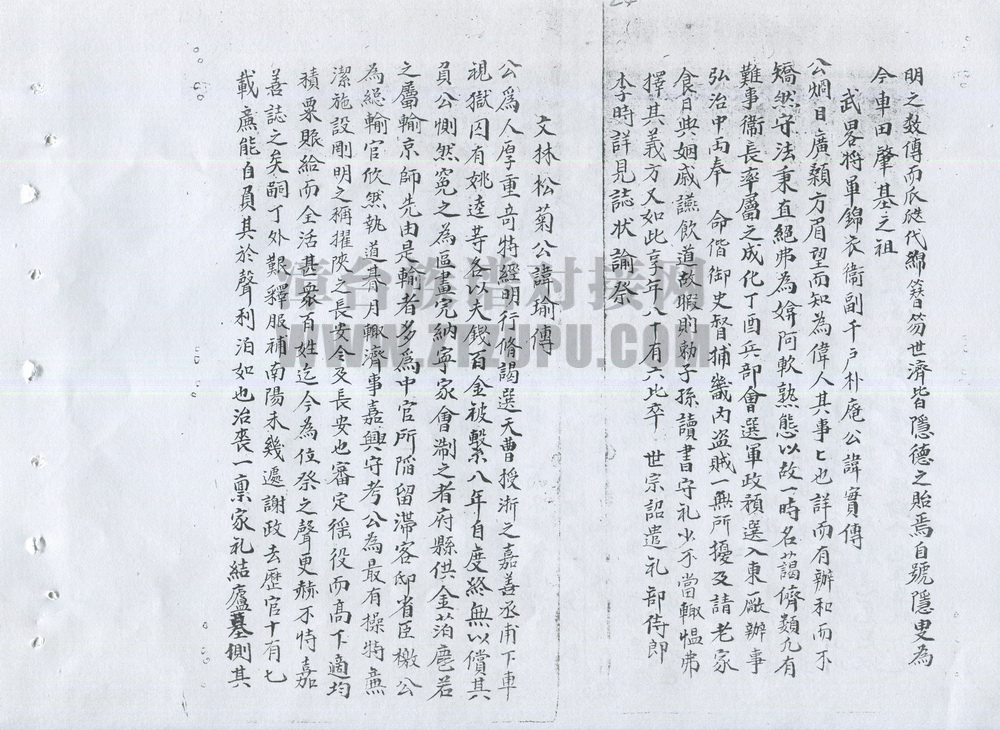 明之数傳而瓜瓞代綿簪笏世濟皆隱德之貽焉自號隱叟為
今車田肇基之祖
武畧将軍錦衣衞副千戶朴庵公諱實傳
公烱目廣顙方眉望而知為偉人其事亡也詳而有辦和而不
矯然守法秉直絕弗為媕阿軟熟態以故一時名藹儕類凡有
難事衞長率屬之成化丁酉兵部會選軍政預選入東厰辦事
弘治中两奉 命偕御史督捕畿内盗賊一無所擾及請老家
食日與姻戚讌飲道故暇則勅子孫讀書守礼少不當輒愠弗
擇其義方又如此享年八十有六比卒 世宗詔遣礼部侍郎
李時詳見誌状諭祭
文林松菊公諱瑜傳
公爲人厚重奇特經明行脩謁選天曹授浙之嘉善丞甫下車
視獄囚有姚逵䓁各以欠錢百金被繫八年自度終無以償其
員公惻然寃之為區畫完納寜家會淛之者府縣供金箔麀若
之屬輸京師先由是輸者多爲中官所陷留滯客邸省臣檄公
為総輸官欣然執道春月輒濟事嘉興守考公為最有操特亷
潔施設剛明之稱擢陜之長安令及長安也審定徭役而髙下適均
積粟賑給而全活甚衆百姓迄今為伎祭之聲更赫不特嘉
善誌之矣嗣丁外艱釋服補南陽未幾遞謝政去歷官十有七
載亷能自負其於聲利泊如也治䘮一禀家礼結廬墓側其
章台族谱对接网
WWW.ZTZUPU.COM